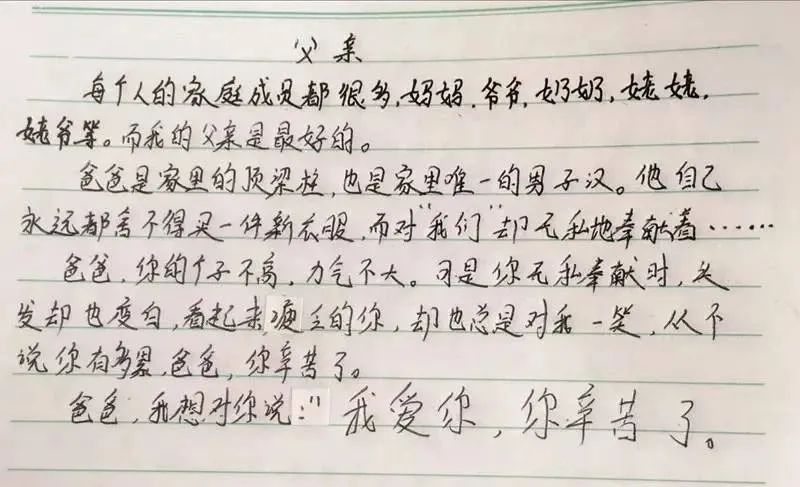 父亲
每个人的家庭成员都很多,妈妈,爷爷,奶奶,姥姥,
姥爷等。而我的父亲是最好的。
爸爸是家里的顶梁柱,也是家里唯一的男子汉。他自己
永远都舍不得买一件新衣服,而对"我们"却无私地奉献着······
爸爸,你的个子不高,力气不大。可是你无私奉献时,头
发却也变白,看起来疲乏的你,却也总是对我一笑,从不
说你有多累,爸爸,你辛苦了。
爸爸,我想对你说:"我爱你,你辛苦了。